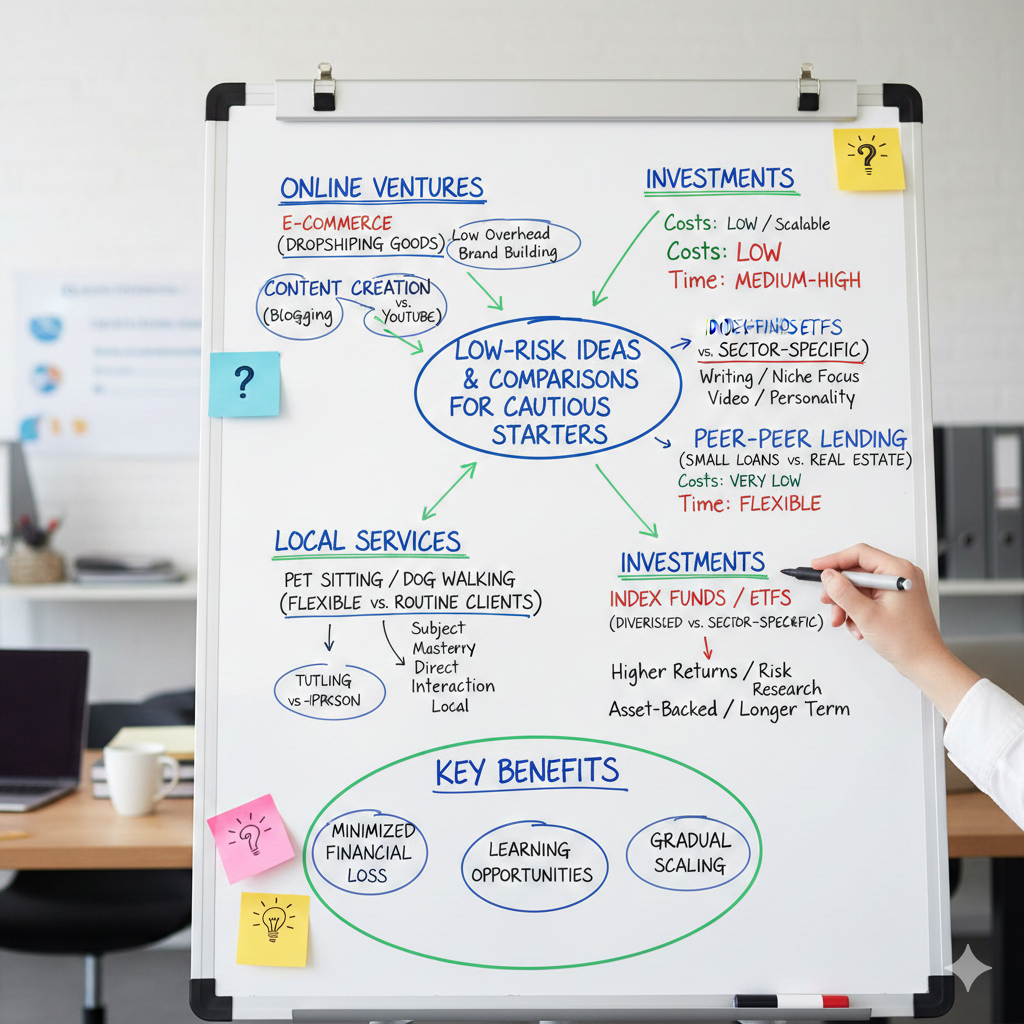 ONLINE VENTURES
E-COMMERCE
(DROPSHIPING GOODS)
Low Overhead
Brand Building
CONTENT CREATION
(Blogging
vs.
YOUTUBE)
INVESTMENTS
Costs: LOW / Scalable
Costs: LOW
Time: MEDIUM-HIGH
?
?
LOW-RISK IDEAS
& COMPARISONS
FOR CAUTIOUS
STARTERS
ETFS
vs. SECTOR-SPECIFIC)
Writing / Niche Focus
Video / Personality
PEER-PEER LENDING
(SMALL LOANS vs. REAL ESTATE)
Costs: VERY LOW
Time: FLEXIBLE
LOCAL SERVICES
PET SITTING / DOG WALKING
(FLEXIBLE vs. ROUTINE CLIENTS)
Subject
Masterry
Direct
Interaction
Local
TUTLING
vs
INVESTMENTS
INDEX FUNDS / ETFS
(DIVERISCED vs. SECTOR-SPECIFIC)
Higher Returns / Risk
Research
Asset-Backed / Longer Term
KEY BENEFITS
MINIMIZED
FINANCIAL
LOSS
LEARNING
OPPORTUNITIES
GRADUAL
SCALING
?